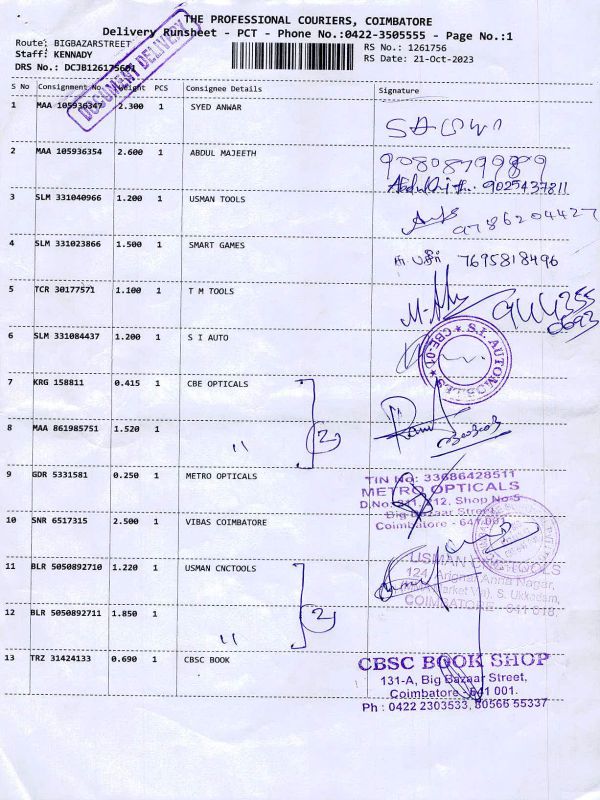 THE PROFESSIONAL COURIERS, COIMBATORE
Delivery Runsheet - PCT - Phone No.:0422-3505555 - Page No.:1
Route: BIGBAZARSTREET
RS No.: 1261756
Staff: KENNADY
RS Date: 21-Oct-2023
DRS No.: DCJB126175601
DOCUMENT DELIVERY
S No Consignment No. Weight PCS Consignee Details Signature
1 MAA 105936347 2.300 1 SYED ANWAR
2 MAA 105936354 2.600 1 ABDUL MAJEETH
9025437811
3 SLM 331040966 1.200 1 USMAN TOOLS
9786204427
4 SLM 331023866 1.500 1 SMART GAMES 7695818496
5 TCR 30177571 1.100 1 T M TOOLS
6 SLM 331084437 1.200 1 S I AUTO
S.I. AUTOMOBILES CBE-01
7 KRG 158811 0.415 1 CBE OPTICALS
8 MAA 861985751 1.520 1 " 2
9 GDR 5331581 0.250 1 METRO OPTICALS
TIN No: 33686428511
METRO OPTICALS
Big Bazaar Street,
Coimbatore - 641 001.
10 SNR 6517315 2.500 1 VIBAS COIMBATORE
11 BLR 5050892710 1.220 1 USMAN CNCTOOLS
USMAN CNC TOOLS
124, Arignar Anna Nagar,
S. Ukkadam,
COIMBATORE - 641 018.
12 BLR 5050892711 1.850 1 " 2
13 TRZ 31424133 0.690 1 CBSC BOOK
CBSC BOOK SHOP
131-A, Big Bazaar Street,
Coimbatore - 641 001.
Ph : 0422 2303533, 80566 55337